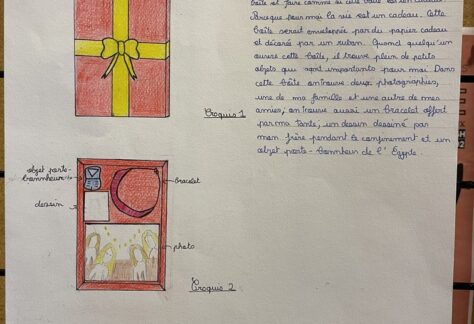 boîte et faire comme si cette boîte est un cadeau.
Parceque pour moi la vie est un cadeau. Cette
boîte serait enveloppée par du papier cadeau
et décorée par un ruban. Quand quelqu'un
ouvre cette boîte, il trouve plein de petits
objets qui sont importants pour moi. Dans
cette boîte on trouve deux photographies,
une de ma famille et une autre de mes
amies, on trouve aussi un bracelet offert
par ma tante, un dessin dessiné par
mon frère pendant le confinement et un
objet porte-bonheur de l'Egypte.
Croquis 1
objet porte-
bonheur
bracelet
dessin
photo
Croquis 2